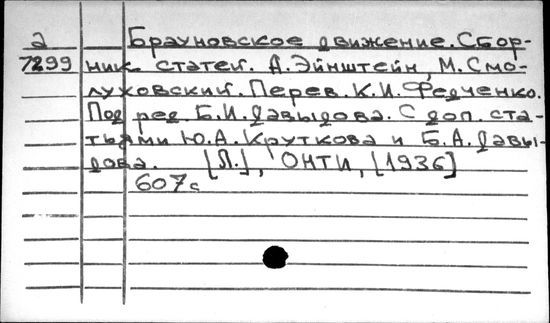 а Брауновское движение. Сбор-
7299 ник статей. А. Эйнштейн, М. Смо-
луховский. Перев. К.И. Федченко.
Под ред. Б.И. Давыдова. С доп. ста-
тьями Ю.А. Круткова и Б.А. Давы-
дова. [Л.], ОНТИ, [1936]
607с